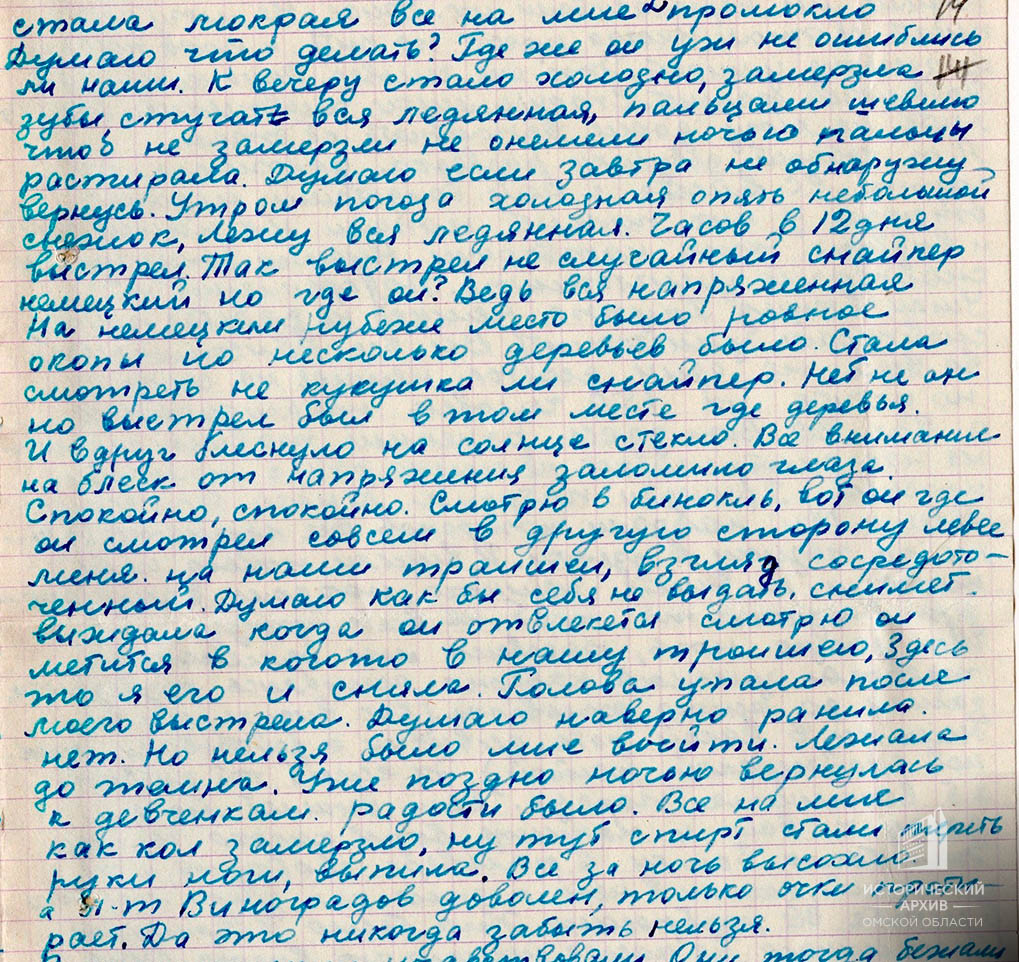 стала мокрая все на мне промокло
14
Думаю что делать? Где же он ужи не ошиблись
14
ли наши. К вечеру стало холодно, замерзла
зубы, стучат вся ледянная, пальцами шевелю
чтоб не замерзли не онемели ночью пальцы
растирала. Думаю если завтра не обнаружу
вернусь. Утром погода холодная опять небольшой
снежок, лежу вся ледянная. Часов в 12 дня
выстрел. Так выстрел не случайный снайпер
немецкий но где он? Ведь вся напряженная
На немецким рубеже место было ровное
окопы но несколько деревьев было. Стала
смотреть не кукушка ли снайпер. Нет не он
но выстрел был в том месте где деревья.
И вдруг блеснуло на солнце стекло. Все внимание
на блеск от напряжения заломило глаза
Спокойно, спокойно. Смотрю в бинокль, вот он где
он смотрел совсем в другую сторону левее
меня. на наши траншеи, взгляд сосредото-
ченный. Думаю как бы себя не выдать, снимет.
выжидала когда он отвлекется смотрю он
метится в когото в нашу траншею, Здесь
то я его и сняла. Голова упала после
моего выстрела. Думаю наверно ранила.
нет. Но нельзя было мне выйти. Лежала
до темна. Уже поздно ночью вернулась
к девченкам. радости было. Все на мне
как кол замерзло, ну тут спирт стали тереть
руки ноги, выпила. Все за ночь высохло
а л-т Виноградов доволен, только очки проти-
рает. Да это никогда забыть нельзя.
Они тогда бежали
ИСТОРИЧЕСКИЙ
АРХИВ
ОМСКОЙ ОБЛАСТИ